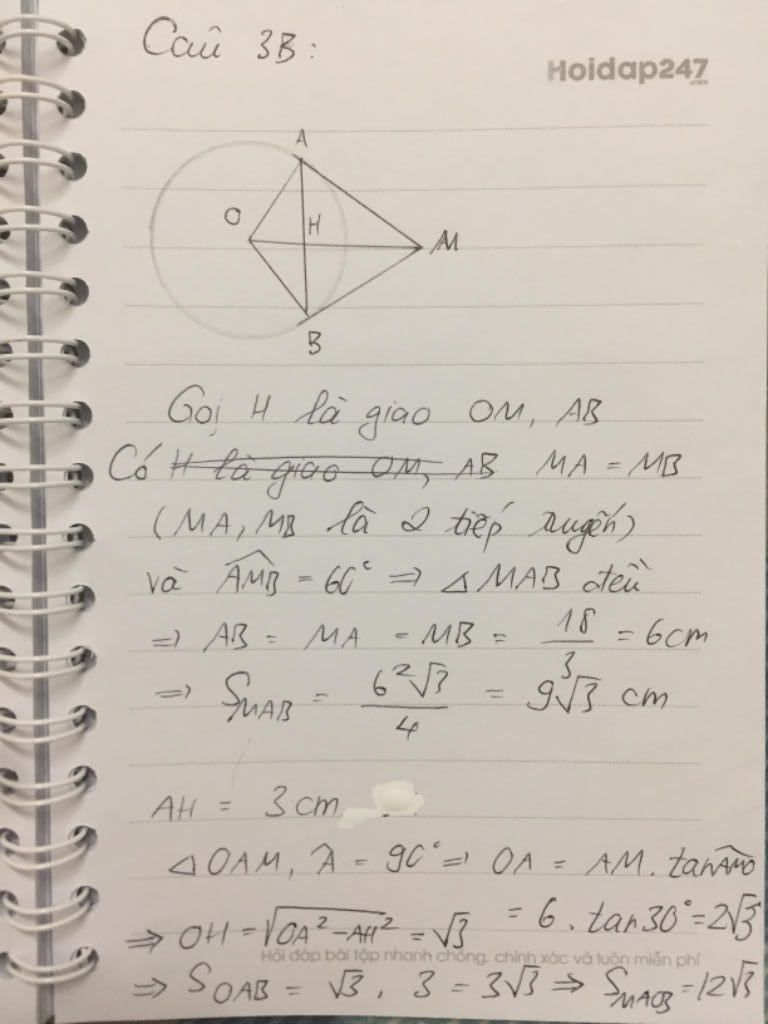 Câu 3B:
Hoidap247
.com
A
O
H
M
B
Gọi H là giao OM, AB
Có H là giao OM, AB MA = MB
(MA, MB là 2 tiếp tuyến)
và AMB = 60° => △MAB đều
=> AB = MA = MB = 18/3 = 6cm
=> S_MAB = 6²√3/4 = 9√3 cm
AH = 3cm
△OAM, Â = 90° => OA = AM. tanAMO
=> OH = √OA² - AH² = √3 = 6. tan30° = 2√3
Hỏi đáp bài tập nhanh chóng, chính xác và luôn miễn phí
=> S_OAB = √3. 3 = 3√3 => S_MAOB = 12√3